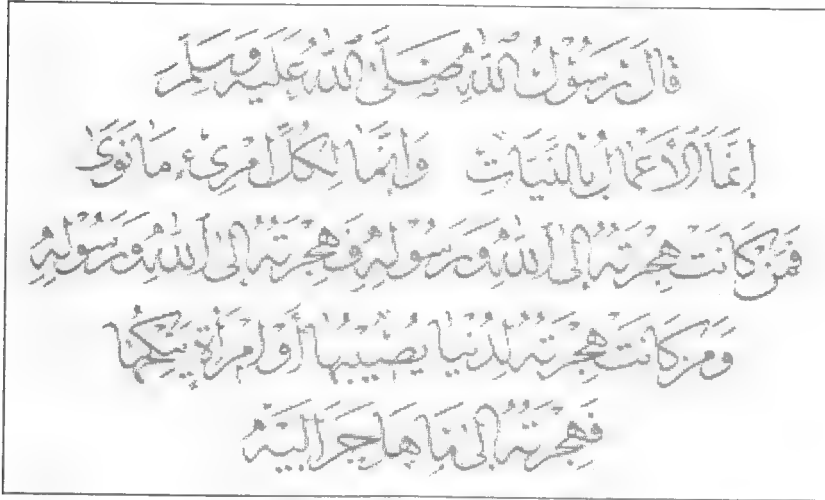 قَالَ رَسُوْلُ اللهِ صَلَّى اللهُ عَلَيْهِ وَسَلَّمَ
إِنَّمَا الْأَعْمَالُ بِالنِّيَّاتِ وَإِنَّمَا لِكُلِّ امْرِئٍ مَا نَوَى
فَمَنْ كَانَتْ هِجْرَتُهُ إِلَى اللهِ وَرَسُوْلِهِ فَهِجْرَتُهُ إِلَى اللهِ وَرَسُوْلِهِ
وَمَنْ كَانَتْ هِجْرَتُهُ لِدُنْيَا يُصِيْبُهَا أَوِ امْرَأَةٍ يَنْكِحُهَا
فَهِجْرَتُهُ إِلَى مَا هَاجَرَ إِلَيْهِ